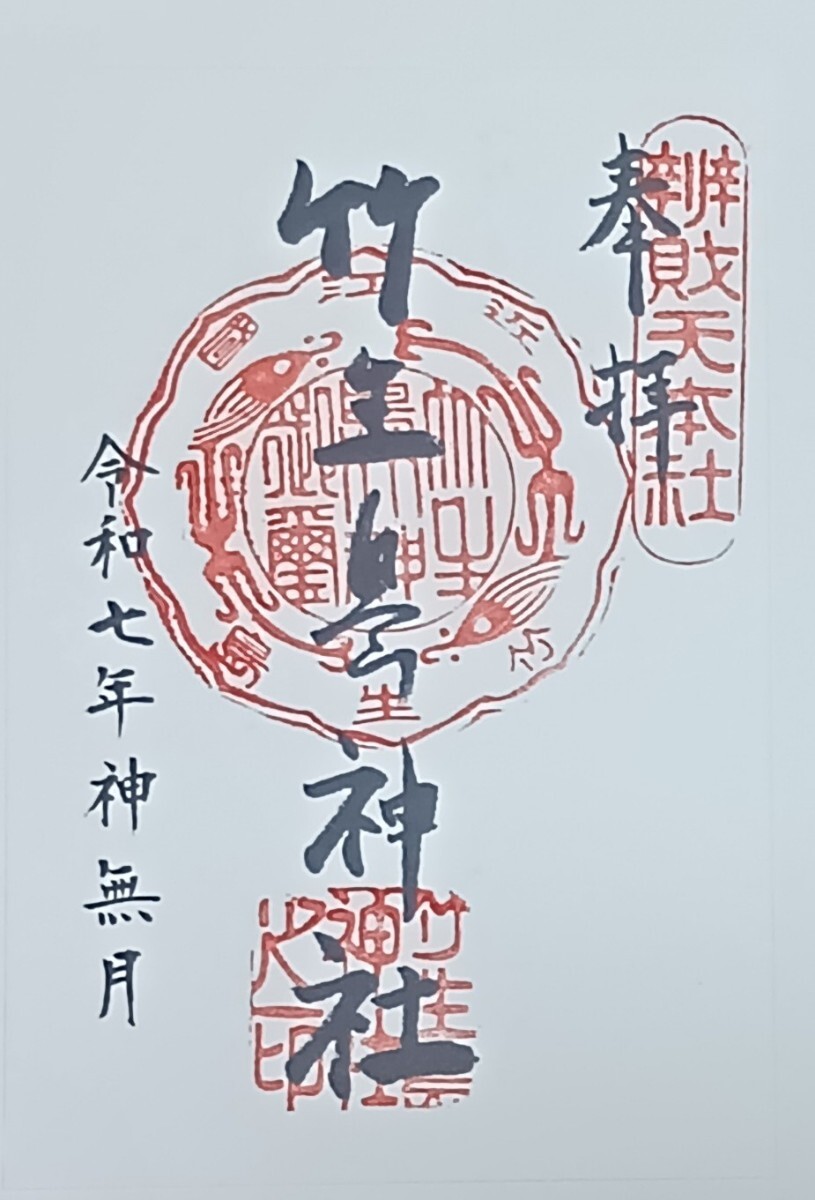 奉拝
辨財天本社
竹生島神社
近江國
竹生島
竹生島神社之印
令和七年神無月